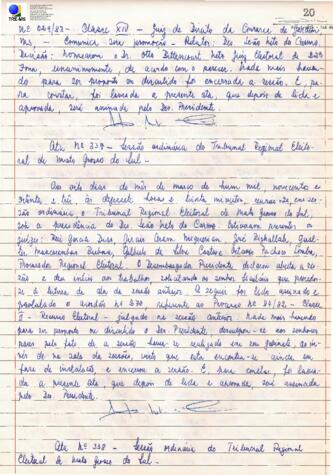 TRE-MS
20
nº 049/82 - Classe XII - Juiz de Direito da Comarca de Jardim
MS, - Comunica sua promoção - Relator: Des. Leão Neto do Carmo.
Decisão: nomearam o Dr. Otto Bittencourt Neto Juiz Eleitoral da
Zona, unanimemente de acordo com o parecer. Nada mais haven-
do para ser proposto ou discutido foi encerrada a sessão. E, pa-
ra constar, foi lavrada a presente ata, que depois de lida e
aprovada, será assinada pelo Des. Presidente.
Ata Nº 337 - Sessão ordinária do Tribunal Regional Eleito-
ral de Mato Grosso do Sul.
Aos oito dias do mês de março de hum mil, novecentos e
oitenta e três, às dezessete horas e trinta minutos, reuniu-se, em ses-
são ordinária, o Tribunal Regional Eleitoral de Mato Grosso do Sul,
sob a presidência do Des. Leão Neto do Carmo. Estiveram presentes os
juízes: Rui Garcia Dias, José Rizkallah,
Gilberto da Silva Castro,
Procurador Regional Eleitoral. O Desembargador Presidente declarou aberta a ses-
são e deu início aos trabalhos solicitando ao senhor Secretário que procedes-
se à leitura da ata da sessão anterior. A seguir foi lido, assinado e
publicado o acórdão nº 370, referente ao Processo nº 34/82 - Classe
II - Recurso Eleitoral - julgado na sessão anterior. Nada mais havendo
para ser proposto ou discutido o Des. Presidente, desculpou-se aos senhores
juízes pelo fato de a sessão haver-se realizado em seu gabinete, ao in-
vés de na sala de sessões, visto que esta encontra-se ainda em
fase de instalação, e encerrou a sessão. E, para constar, foi lavra-
da a presente ata, que depois de lida e aprovada, será assinada
pelo Des. Presidente.
Ata Nº 338 - Sessão ordinária do Tribunal Regional
Eleitoral de Mato Grosso do Sul.